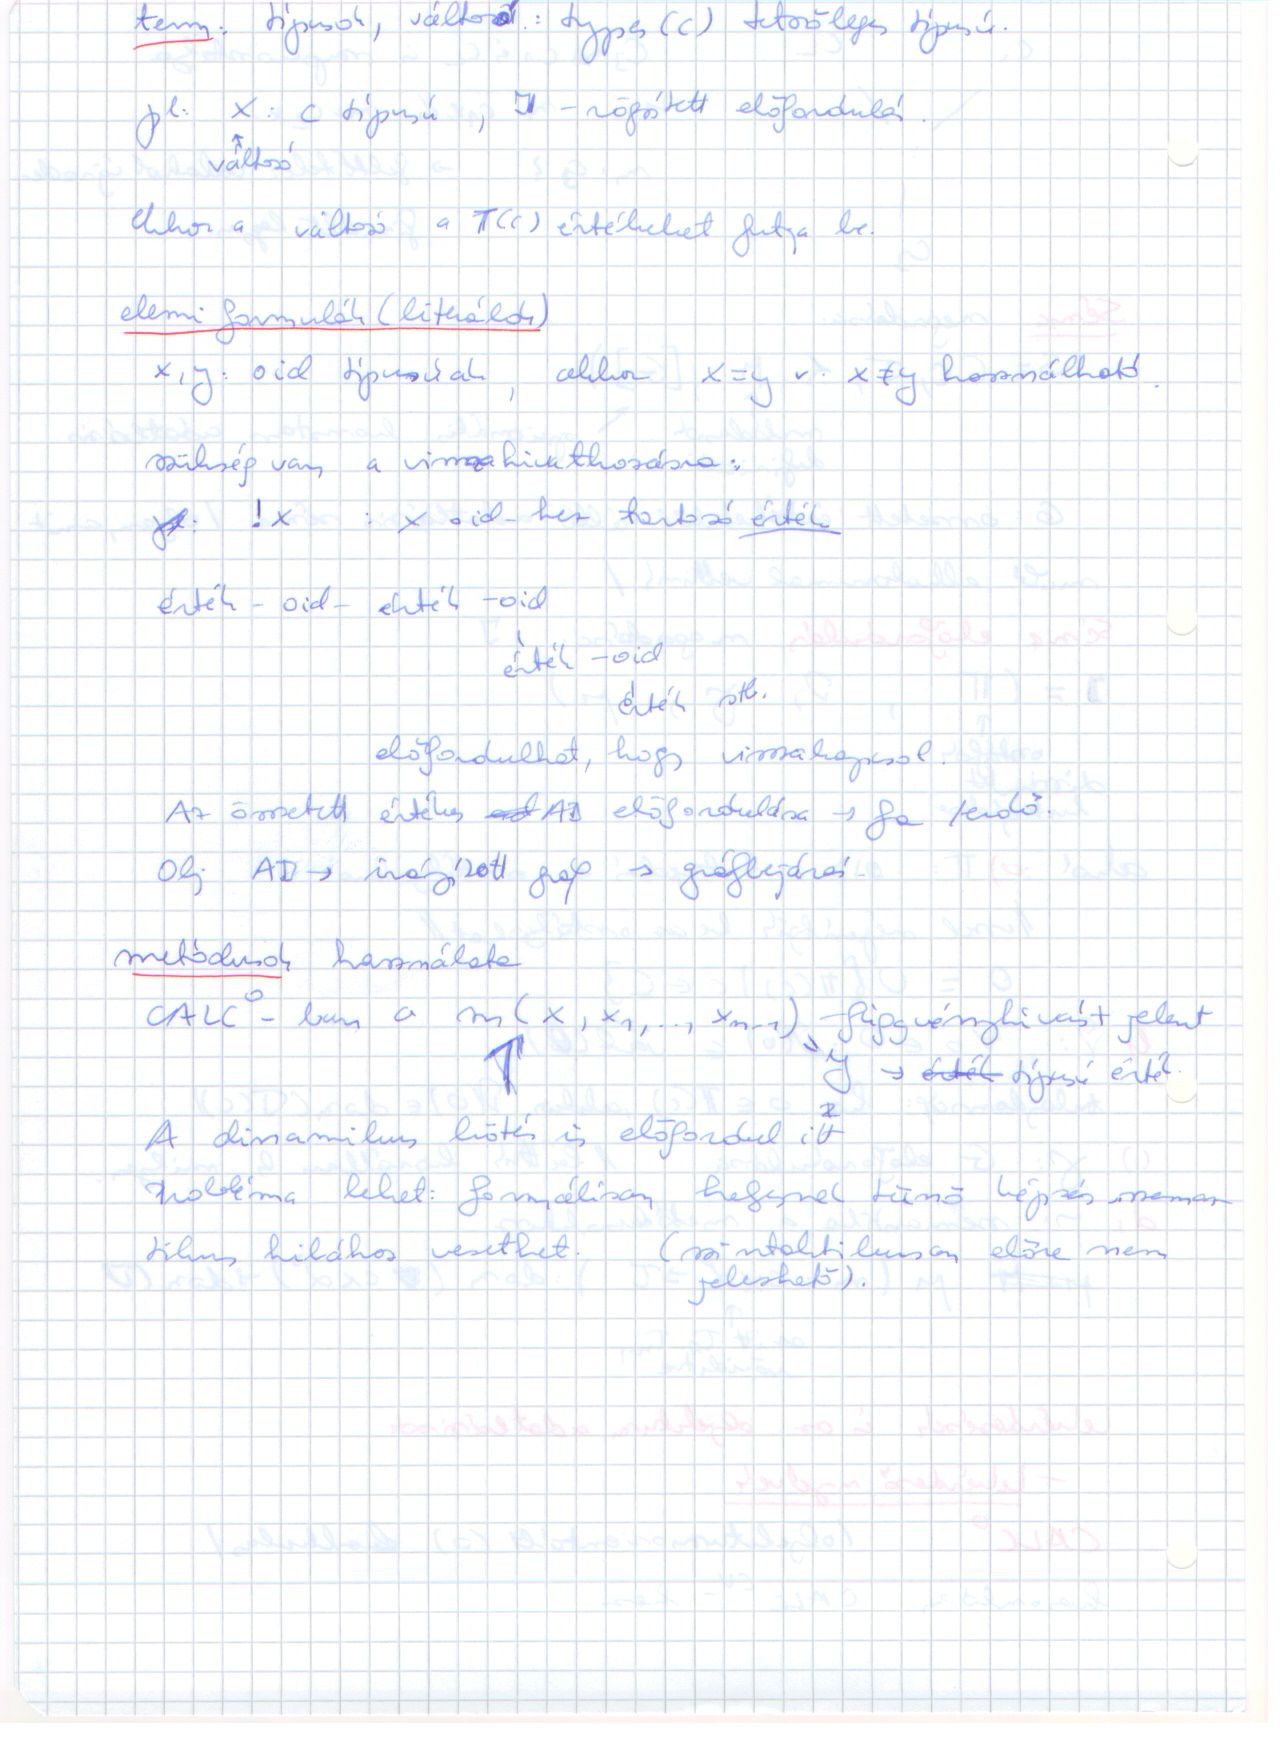 term: típusok, változó: types(C) tetszőleges típusú.
pl: x: C típusú, I - rögzített előfordulás.
változó
Ekkor a változó a π(C) értékeket futja be.
elemi formulák (literálok)
x, y: oid típusúak, akkor x=y v. x≠y használható.
szükség van a visszahivatkozásra:
!x : x oid-hez tartozó érték
érték - oid - érték - oid
érték - oid
érték stb.
előfordulhat, hogy visszakapcsol.
Az összetett értékes AB előfordulása → fa / erdő.
Obj AB → irányított gráf → gráfbejárás.
metódusok használata
CALC° - ban a m(x, x1, ..., xn-1) - függvényhívást jelent
y → típusú érték.
A dinamikus kötés is előfordul itt
Probléma lehet: formálisan helyesnek tűnő képzés szeman
tikus hibához vezethet. (szintaktikusan előre nem
jelezhető).